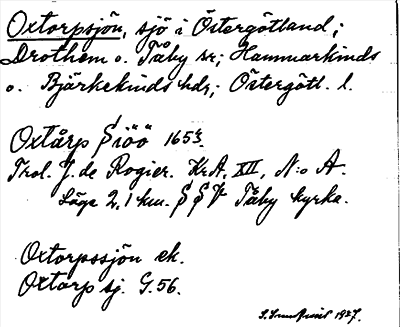 Oxtorpsjön, sjö i Östergötland;
Drothem o. Tåby snr; Hammarkinds
o. Björkekinds hdr; Östergötl. l.
Oxtårp Siöö 1653.
Trol. J. de Rogier. KrA, XII, N:o A.
Läge 2,1 km. SSV Tåby kyrka.
Oxtorpssjön ek.
Oxtorp sj. G.56.
1927.